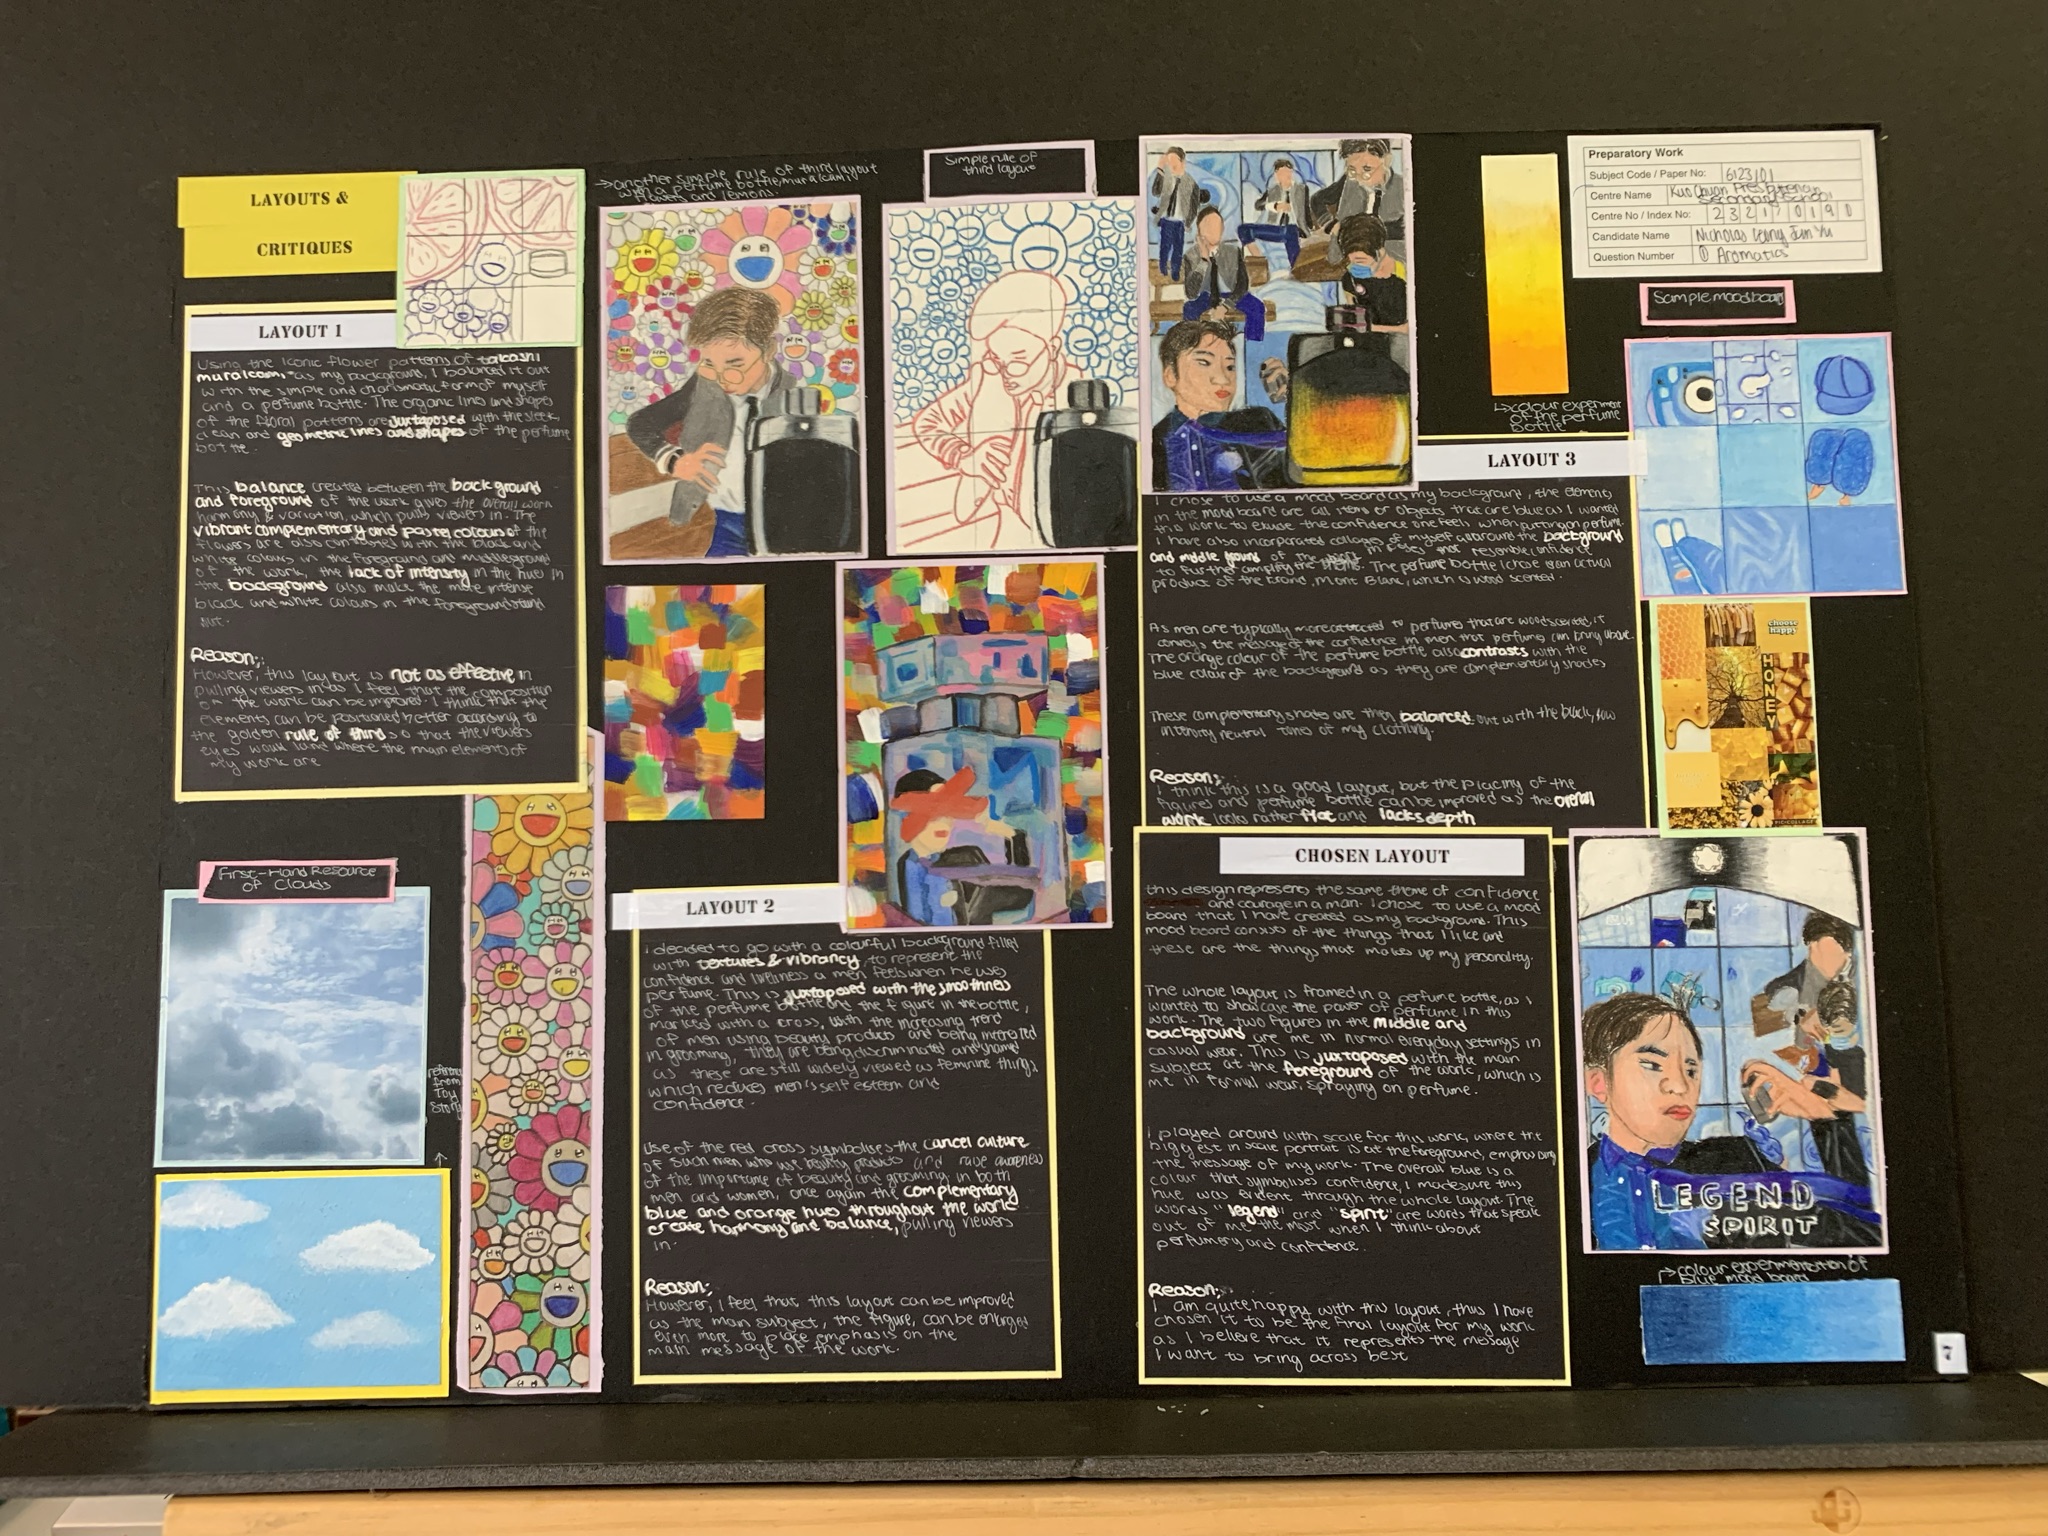 LAYOUTS &
CRITIQUES
LAYOUT 1
Using the iconic flower patterns of takashi
murakami, as my background, I balanced it out
with the simple and charismatic form of myself
and a perfume bottle. The organic lines and shapes
of the floral patterns are juxtaposed with the sleek,
clean and geometric lines and shapes of the perfume
bottle.
This balance created between the background
and foreground of the work gives the overall work
harmony & variation, which pulls viewers in. The
vibrant complementary and pastel colours of the
flowers are also contrasted with the black and
white colours in the foreground and middleground
of the work, the lack of intensity in the hues in
the background also make the more intense
black and white colours in the foreground stand
out.
Reason:
However, this lay out is not as effective in
pulling viewers in as I feel that the composition
of the work can be improved. I think that the
elements can be positioned better according to
the golden rule of thirds so that the viewers
eyes would land where the main elements of
my work are
First-Hand Resource
of Clouds
reference
from
Toy
Story
→ another simple rule of third layout
with a perfume bottle, murakami
flowers and lemons.
Simple rule of
third layout
LAYOUT 2
I decided to go with a colourful background filled
with textures & vibrancy, to represent the
confidence and liveliness a men feels when he uses
perfume. This is juxtaposed with the smoothness
of the perfume bottle and the figure in the bottle,
marked with a cross, with the increasing trend
of men using beauty products and being interested
in grooming, they are being discriminated and shamed
as these are still widely viewed as feminine things,
which reduces men's self esteem and
confidence.
Use of the red cross symbolises the cancel culture
of such men who use beauty products and raise awareness
of the importance of beauty and grooming in both
men and women, once again the complementary
blue and orange hues throughout the work
create harmony and balance, pulling viewers
in.
Reason:
However, I feel that this layout can be improved
as the main subject, the figure, can be enlarged
even more to place emphasis on the
main message of the work.
→ colour experiment
of the perfume
bottle
LAYOUT 3
I chose to use a mood board as my background, the elements
in the mood board are all items or objects that are blue as I wanted
this work to exude the confidence one feels when putting on perfume.
I have also incorporated collages of myself around the background
and middle ground of the work in poses that resemble confidence
to further amplify the theme. The perfume bottle I chose is an actual
product of the brand, Mont Blanc, which is wood scented.
As men are typically more attracted to perfumes that are wood scented, it
conveys the message of the confidence in men that perfumes can bring about.
The orange colour of the perfume bottle also contrasts with the
blue colour of the background as they are complementary shades
These complementary shades are then balanced out with the black, low
intensity neutral tones of my clothing.
Reason:
I think this is a good layout, but the placing of the
figures and perfume bottle can be improved as the overall
work looks rather flat and lacks depth
CHOSEN LAYOUT
this design represents the same theme of confidence
and courage in a man. I chose to use a mood
board that I have created as my background. This
mood board consists of the things that I like and
these are the things that makes up my personality.
The whole layout is framed in a perfume bottle, as I
wanted to showcase the power of perfume in this
work. The two figures in the middle and
background are me in normal everyday settings in
casual wear. This is juxtaposed with the main
subject at the foreground of the work, which is
me in formal wear, spraying on perfume.
I played around with scale for this work, where the
biggest in scale portrait is at the foreground, emphasising
the message of my work. The overall blue is a
colour that symbolises confidence, I made sure this
hue was evident through the whole layout. The
words "legend" and "spirit" are words that speak
out of me the most when I think about
perfumery and confidence.
Reason:
I am quite happy with this layout, thus I have
chosen it to be the final layout for my work
as I believe that it represents the message
I want to bring across best
Preparatory Work
Subject Code / Paper No: 6123/01
Centre Name Kuo Chuan Presbyterian
Secondary School
Centre No / Index No: 2 3 2 1 7 0 1 9 0
Candidate Name Nicholas Leong Jun Yu
Question Number ① Aromatics
Sample moodboard
choose
happy
HONEY
PIC•COLLAGE
LEGEND
SPIRIT
→ colour experimentation of
blue mood board
7